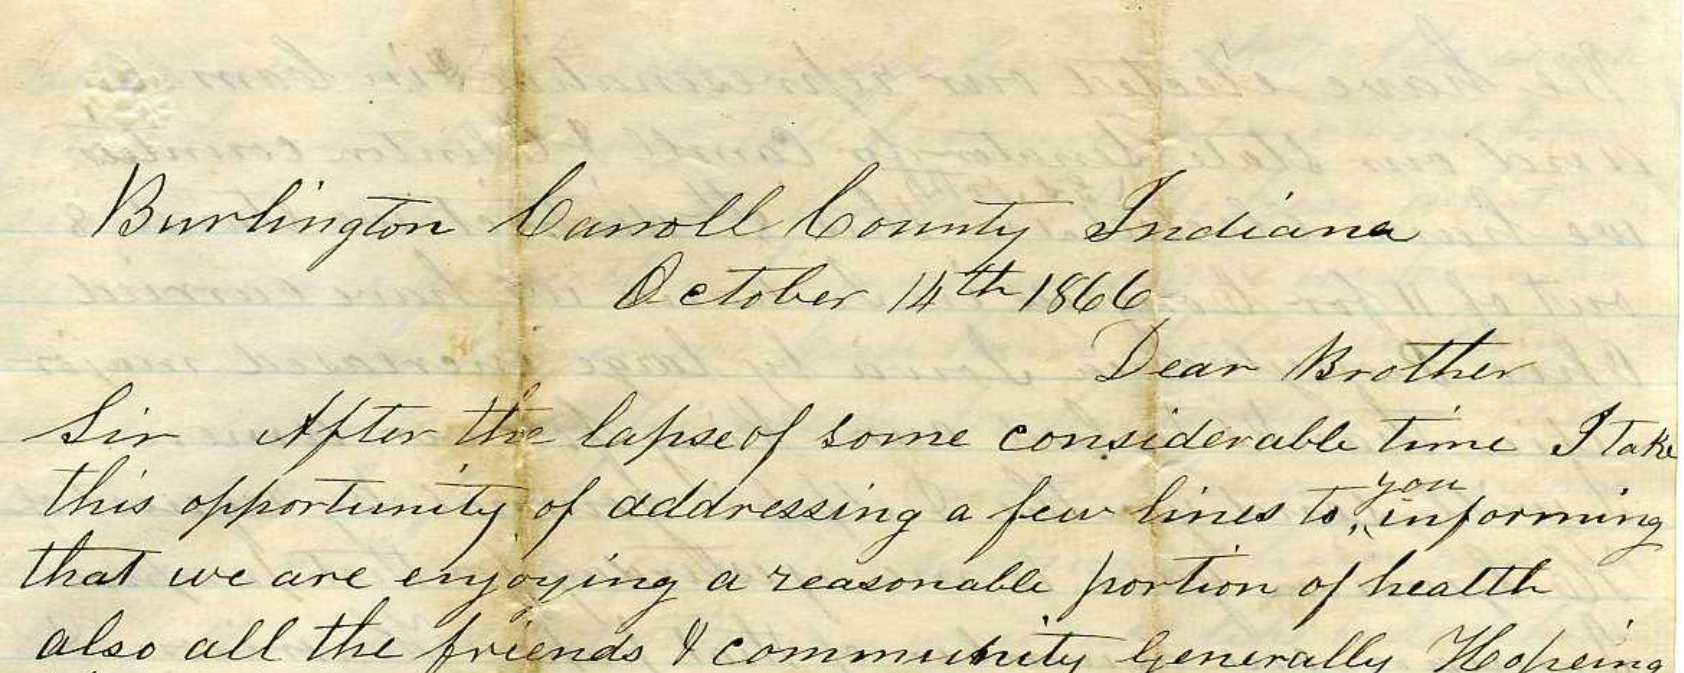 Burlington Carroll County Indiana
October 14th 1866
Dear Brother
Sir After the lapse of some considerable time I take
this opportunity of addressing a few lines to you informing
that we are enjoying a reasonable portion of health
also all the friends & community Generally Hopeing